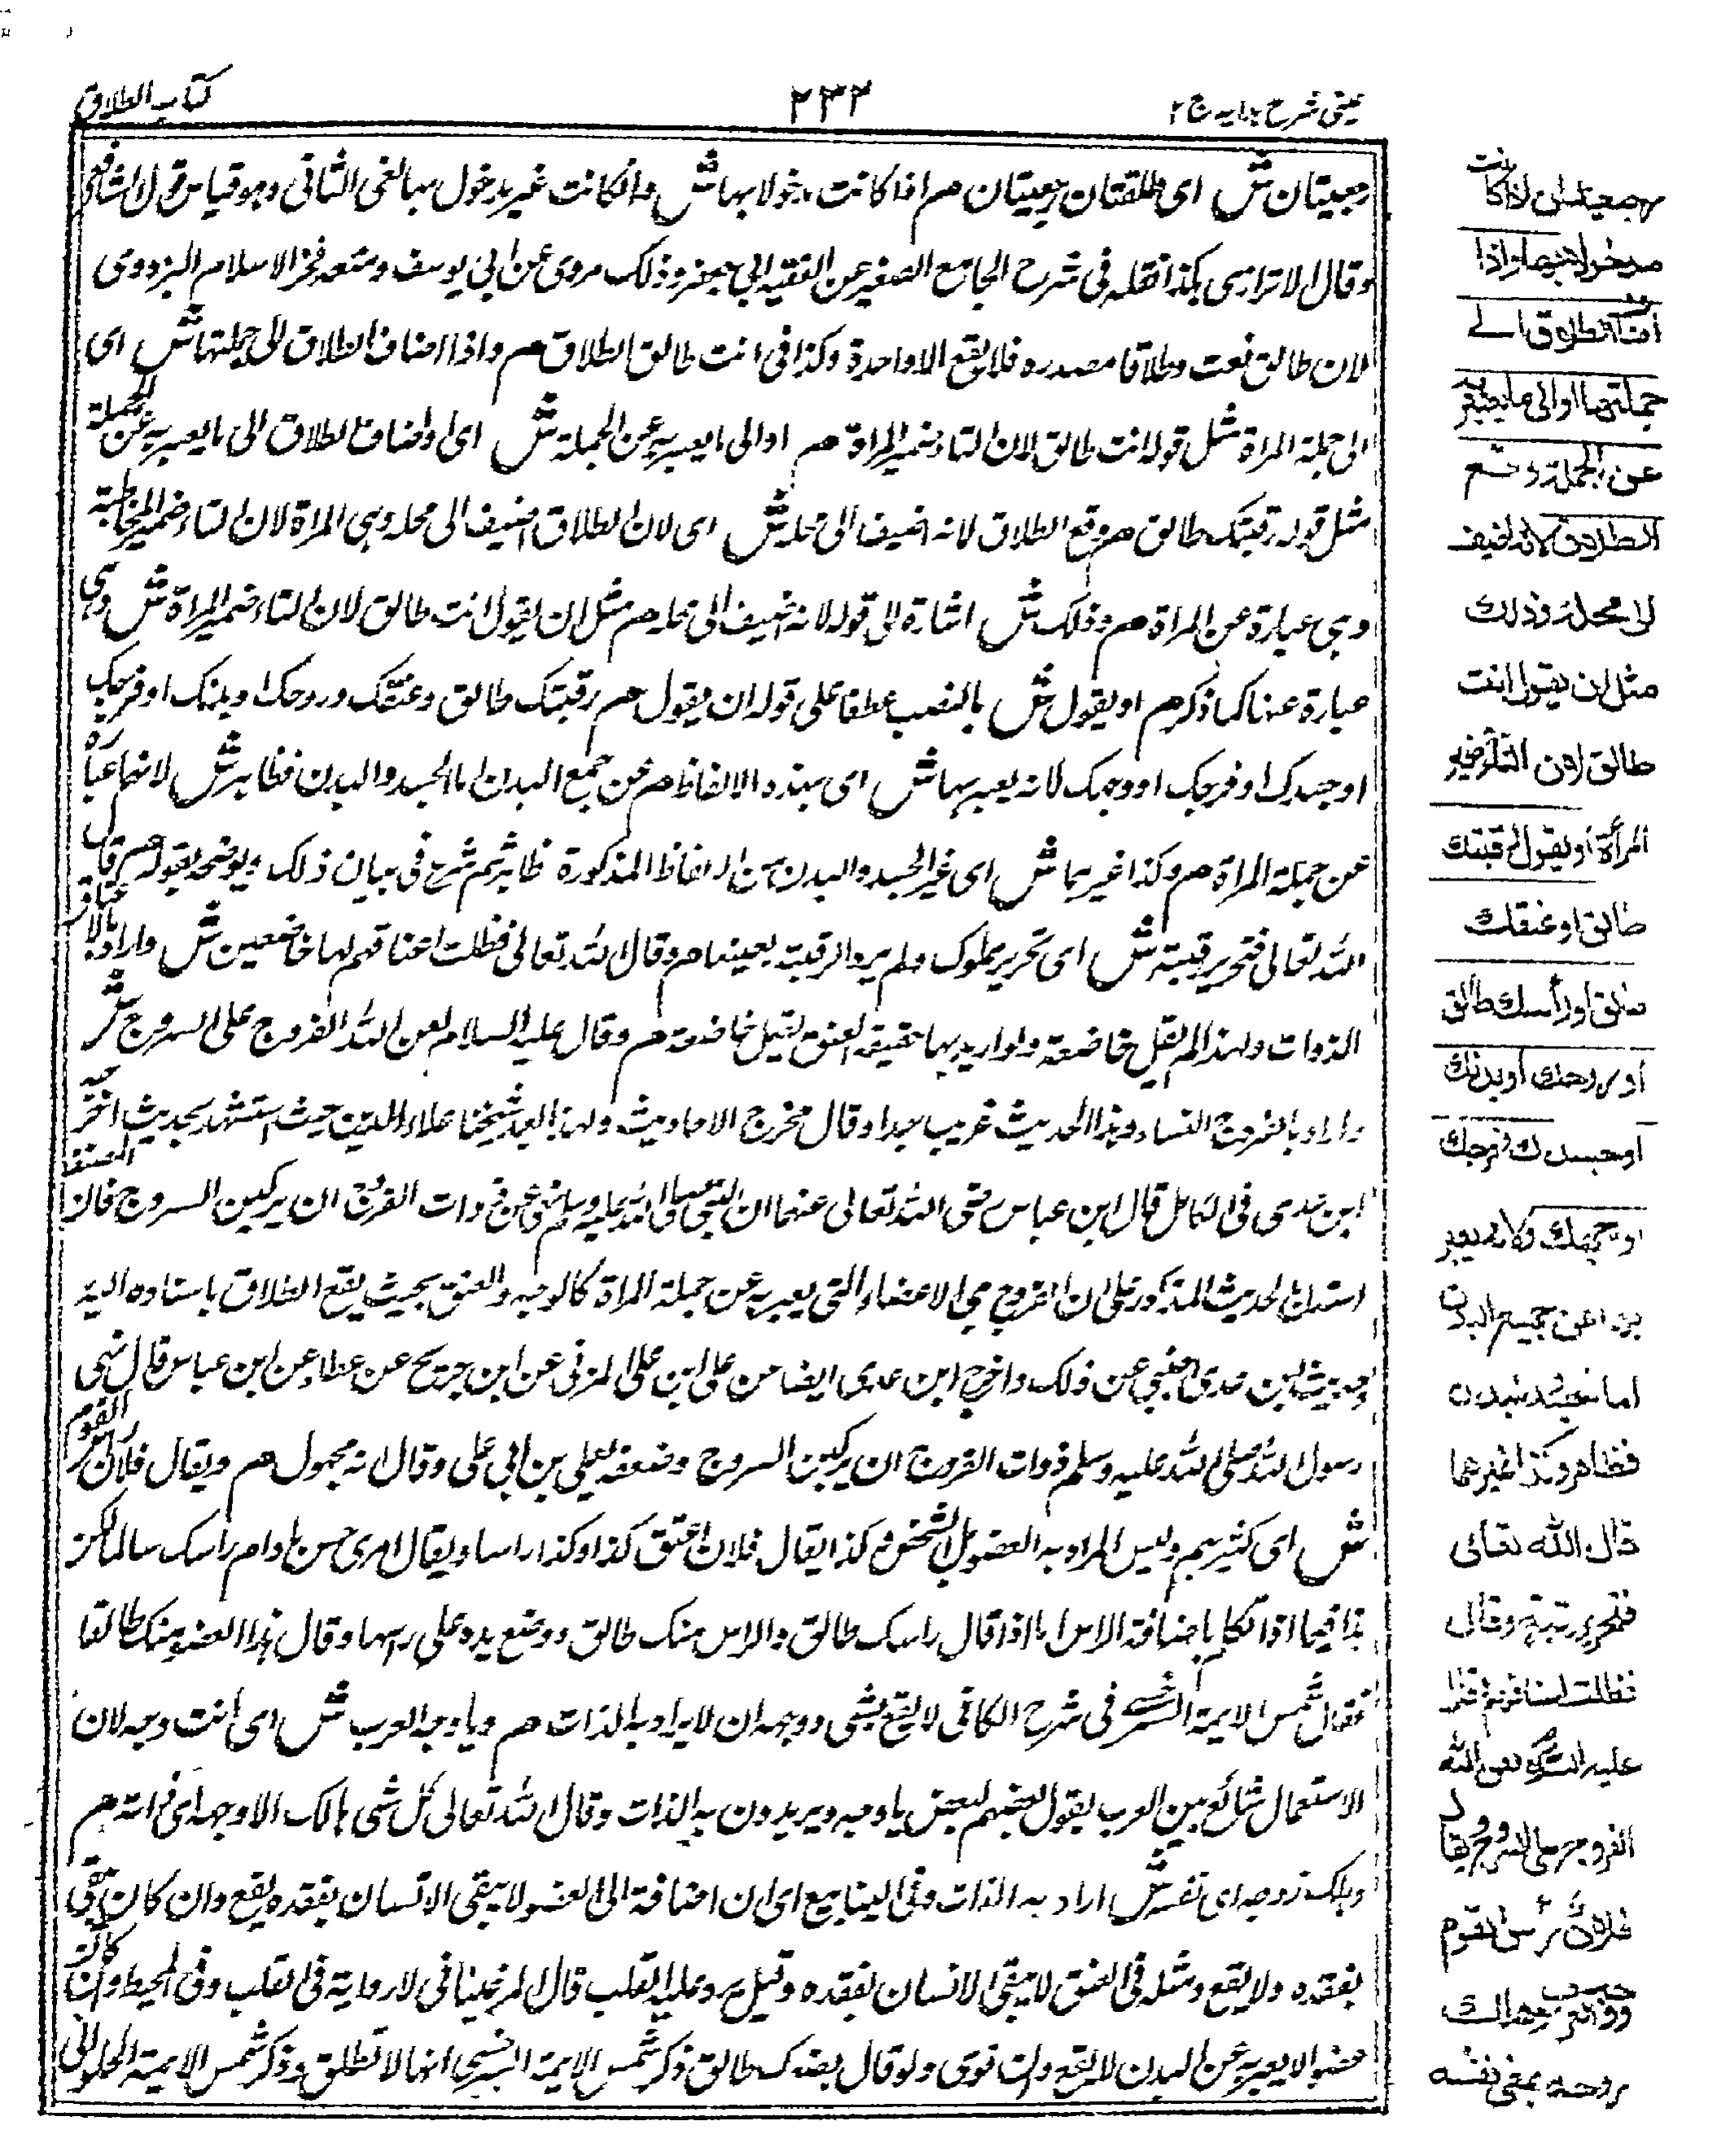 عینی شرح ہدایہ ج ۲
۲۳۲
کتاب الطلاق
رجعيتان ش اى طلقتان رجعيتان م اذا كانت مدخولا بها ش وان كانت غير مدخول بها لغى الثانى وهو قياس قول الشافعى
وقال الاترازى هكذا نقله فى شرح الجامع الصغير عن الفقيه ابى جعفر وذلك مروى عن ابى يوسف ومنعه فخر الاسلام البزدوى
لان طالق نعت وطلاقا مصدره فلا يقع الا واحدة وكذا فى انت طالق الطلاق م واذا اضاف الطلاق الى جملتها ش اى
الى جملة المراة مثل قوله انت طالق لان التاء ضمير المراة م او الى ما يعبر به عن الجملة ش اى او اضاف الطلاق الى ما يعبر به عن الجملة
مثل قوله رقبتك طالق م وقع الطلاق لانه اضيف الى محله ش اى لان الطلاق اضيف الى محله وهى المراة لان التاء ضمير المخاطبة
وهى عبارة عن المراة م وذلك ش اشارة الى قوله لانه اضيف الى محله م مثل ان يقول انت طالق لان التاء ضمير المراة ش وهى
عبارة عنها كما ذكر م او يقول ش بالنصب عطفا على قوله ان يقول م رقبتك طالق وعنقك وروحك او بدنك او فرجك
او جسدك او فرجك او وجهك لانه يعبر بها ش اى بهذه الالفاظ م عن جميع البدن اما الجسد والبدن فظاهر ش لانهما عبارة
عن جملة المراة م وكذا غيرهما ش اى غير الجسد والبدن من الالفاظ المذكورة ظاهر ثم شرع فى بيان ذلك ويوضحه بقوله م قال
الله تعالى فتحرير رقبة ش اى تحرير مملوك ولم يرد الرقبة بعينها م وقال الله تعالى فظلت اعناقهم لها خاضعين ش واراد بالاعناق
الذوات ولهذا لم يقل خاضعة ولو اريد بها حقيقة العنق لقيل خاضعة م وقال عليه السلام لعن الله الفروج على السروج ش
واراد بالفروج النساء وهذا الحديث غريب جدا وقال مخرج الاحاديث ولهذا ابعد شيخنا علاء الدين حيث استشهد بحديث اخرجه
ابن عدى فى الكامل قال ابن عباس رضى الله تعالى عنهما ان النبى صلى الله عليه وسلم نهى عن ذوات الفروج ان يركبن السروج فان المصنف
استدل بالحديث المذكور على ان الفروج من الاعضاء التى يعبر به عن جملة المراة كالوجه والعنق بحيث يقع الطلاق باسناده اليه
وحديث ابن عدى اجنبى عن ذلك واخرج ابن عدى ايضا من على بن على المزنى عن ابن جريج عن عطاء عن ابن عباس قال نهى
رسول الله صلى الله عليه وسلم ذوات الفروج ان يركبن السروج وضعفه لعلى بن ابى على وقال انه مجهول م ويقال فلان راس القوم
ش اى كثيرهم وليس المراد به العضو بل الشخص وكذا يقال فلان اعتق كذا وكذا راسا ويقال امرى حسن ما دام راسك سالما لكن
هذا فيما اذا تكلم باضافة الراس اما اذا قال راسك طالق والراس منك طالق ووضع يده على راسها وقال هذا العضو منك طالق
فقال شمس الايمة السرخسى فى شرح الكافى لا يقع بشى ووجهه ان لا يراد به الذات م ويا وجه العرب ش اى انت وجه لان
الاستعمال شائع بين العرب يقول بعضهم لبعض يا وجه ويريدون به الذات وقال الله تعالى كل شى هالك الا وجهه اى ذاته م
وهلك روحه اى نفسه ش اراد به الذات وفى الينابيع اى ان اضافه الى العضو لا يبقى الانسان بفقده يقع وان كان يبقى
بفقده ولا يقع ومثله فى العنق لا يبقى الانسان بفقده وقيل يرد عليه القلب قال المرغينانى لا رواية فى القلب وفى المحيط وان كانت
عضوا لا يعبر به عن البدن لا يقع وان نوى ولو قال بضعك طالق ذكر شمس الايمة السرخسى انها لا تطلق وذكر شمس الايمة الحلوانى
رجعيتان اذا كانت
مدخولا بها واذا
اضاف الطلاق الى
جملتها او الى ما يعبر به
عن الجملة وقع
الطلاق لانه اضيف
الى محله وذلك
مثل ان يقول انت
طالق لان التاء ضمير
المرأة او يقول رقبتك
طالق او عنقك
طالق او رأسك طالق
او روحك او بدنك
او جسدك او فرجك
او وجهك لانه يعبر
بها عن جميع البدن
اما الجسد والبدن
فظاهر وكذا غيرهما
قال الله تعالى
فتحرير رقبة وقال
فظلت اعناقهم وقال
عليه السلام لعن الله
الفروج على السروج ويقال
فلان رأس القوم
ووجه العرب وهلك
روحه بمعنى نفسه